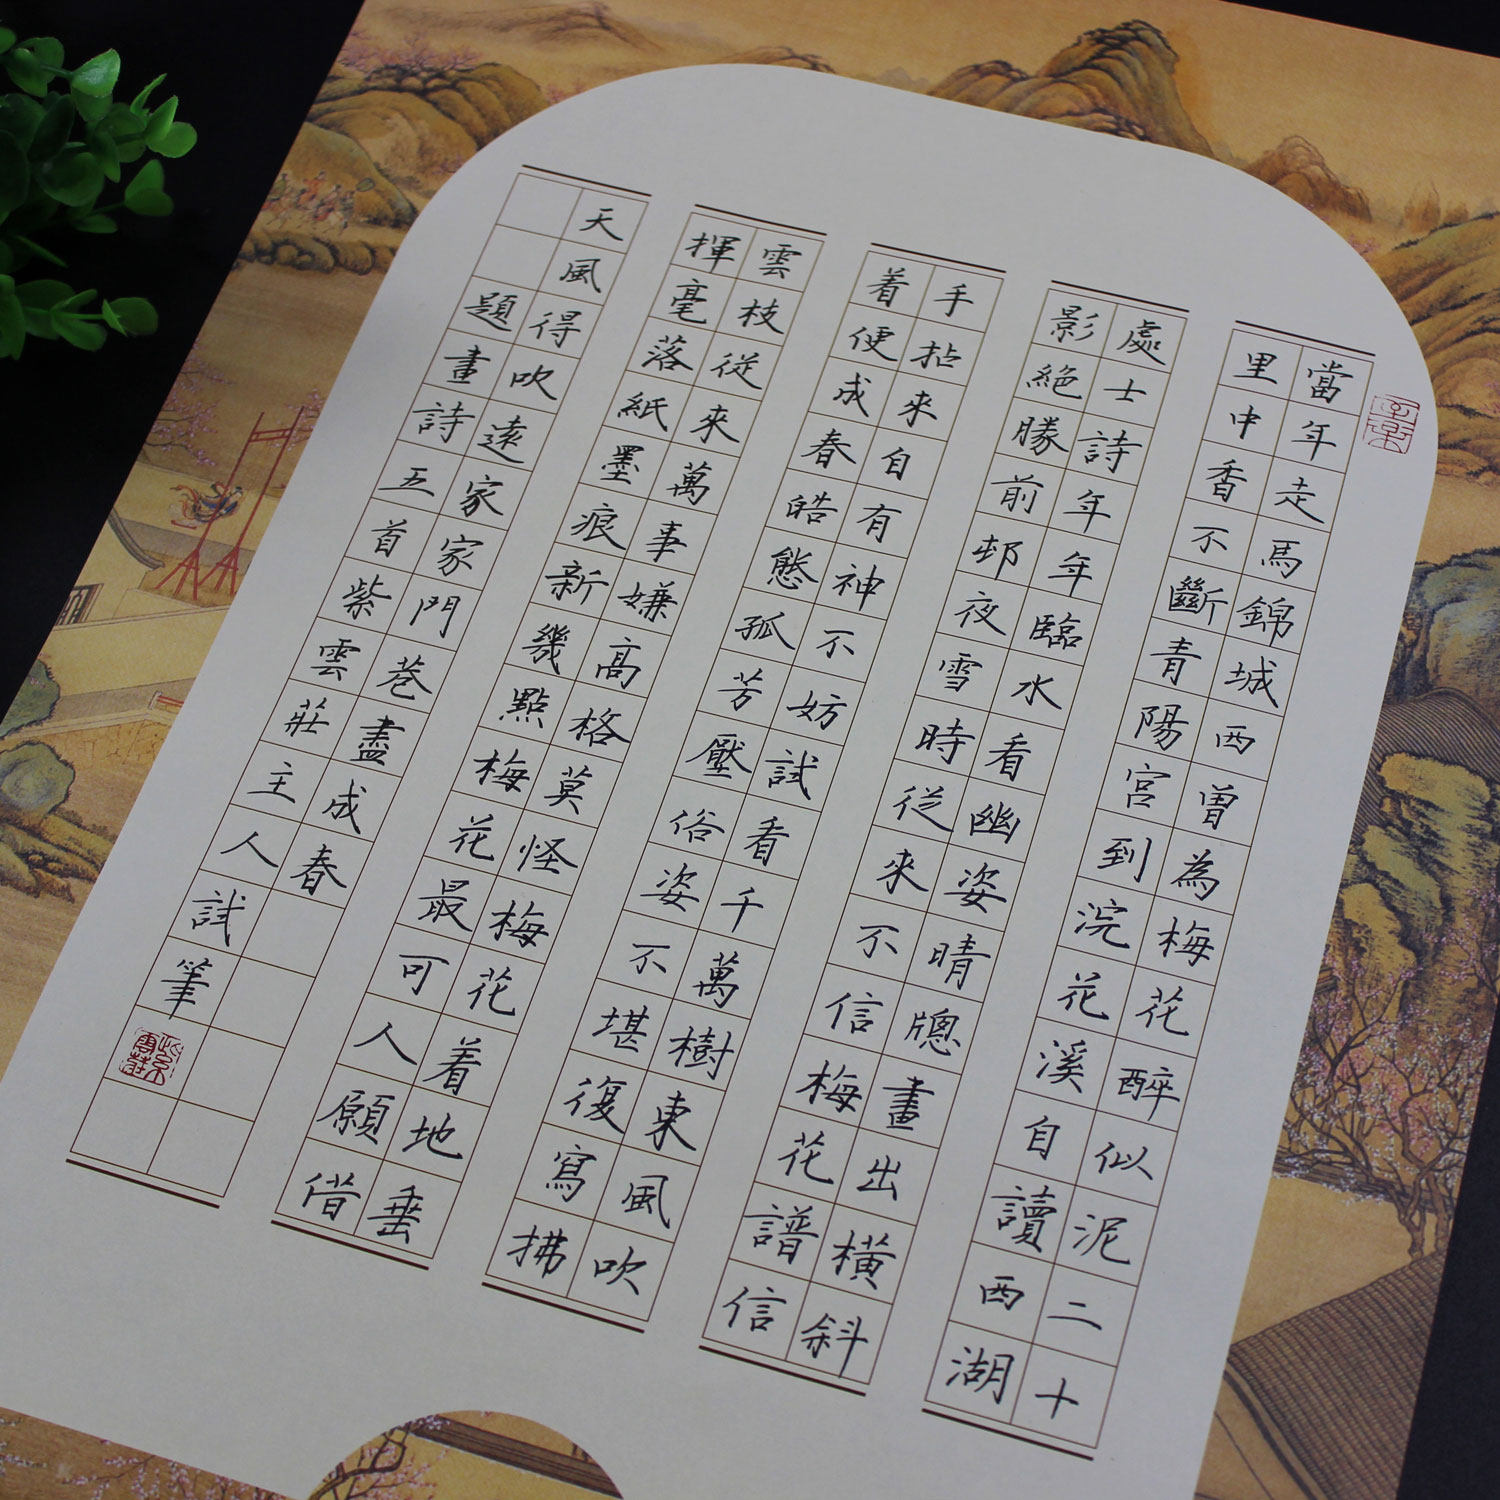 當年走馬錦城西曾為梅花醉似泥二十
里中香不斷青陽宮到浣花溪自讀西湖
處士詩年年臨水看幽姿晴牎畫出橫斜
影絕勝前邨夜雪時從來不信梅花譜信
手拈來自有神不妨試看千萬樹東風吹
着便成春皓態孤芳壓俗姿不堪復寫拂
雲枝從來萬事嫌高格莫怪梅花着地垂
揮毫落紙墨痕新幾點梅花最可人願借
天風得吹遠家家門巷盡成春
題畫詩五首紫雲莊主人試筆
紫雲莊